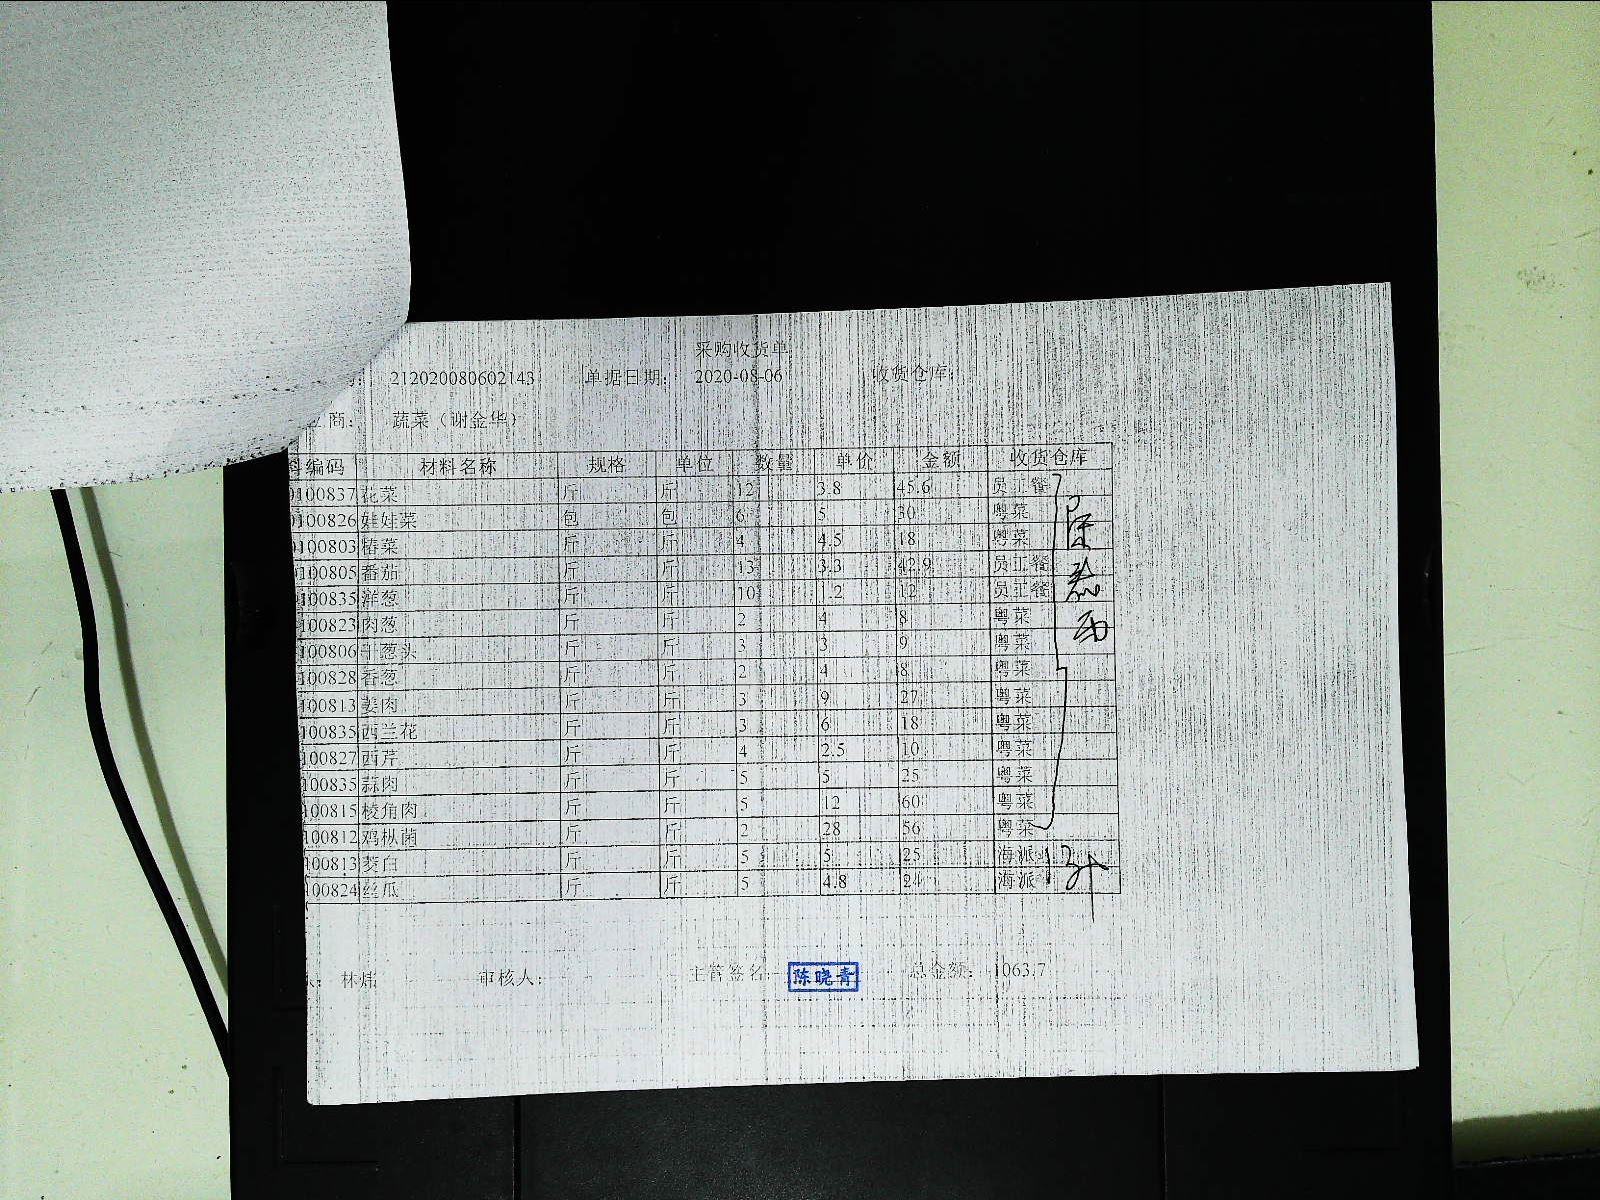 采购收货单
212020080602143 单据日期: 2020-08-06 收货仓库:
商: 蔬菜（谢金华）
编码 材料名称 规格 单位 数量 单价 金额 收货仓库
100837 花菜 斤 斤 12 3.8 45.6 员工餐
100826 娃娃菜 包 包 6 5 30 粤菜
100803 椿菜 斤 斤 4 4.5 18 粤菜
100805 番茄 斤 斤 13 3.3 42.9 员工餐
100835 洋葱 斤 斤 10 1.2 12 员工餐
100823 肉葱 斤 斤 2 4 8 粤菜
100806 干葱头 斤 斤 3 3 9 粤菜
100828 香葱 斤 斤 2 4 8 粤菜
100813 姜肉 斤 斤 3 9 27 粤菜
100835 西兰花 斤 斤 3 6 18 粤菜
100827 西芹 斤 斤 4 2.5 10 粤菜
100835 蒜肉 斤 斤 5 5 25 粤菜
100815 棱角肉 斤 斤 5 12 60 粤菜
100812 鸡枞菌 斤 斤 2 28 56 粤菜
100813 茭白 斤 斤 5 5 25 海派
100824 丝瓜 斤 斤 5 4.8 24 海派
林炜 审核人: 主管签名 陈晓青 总金额: 1063.7